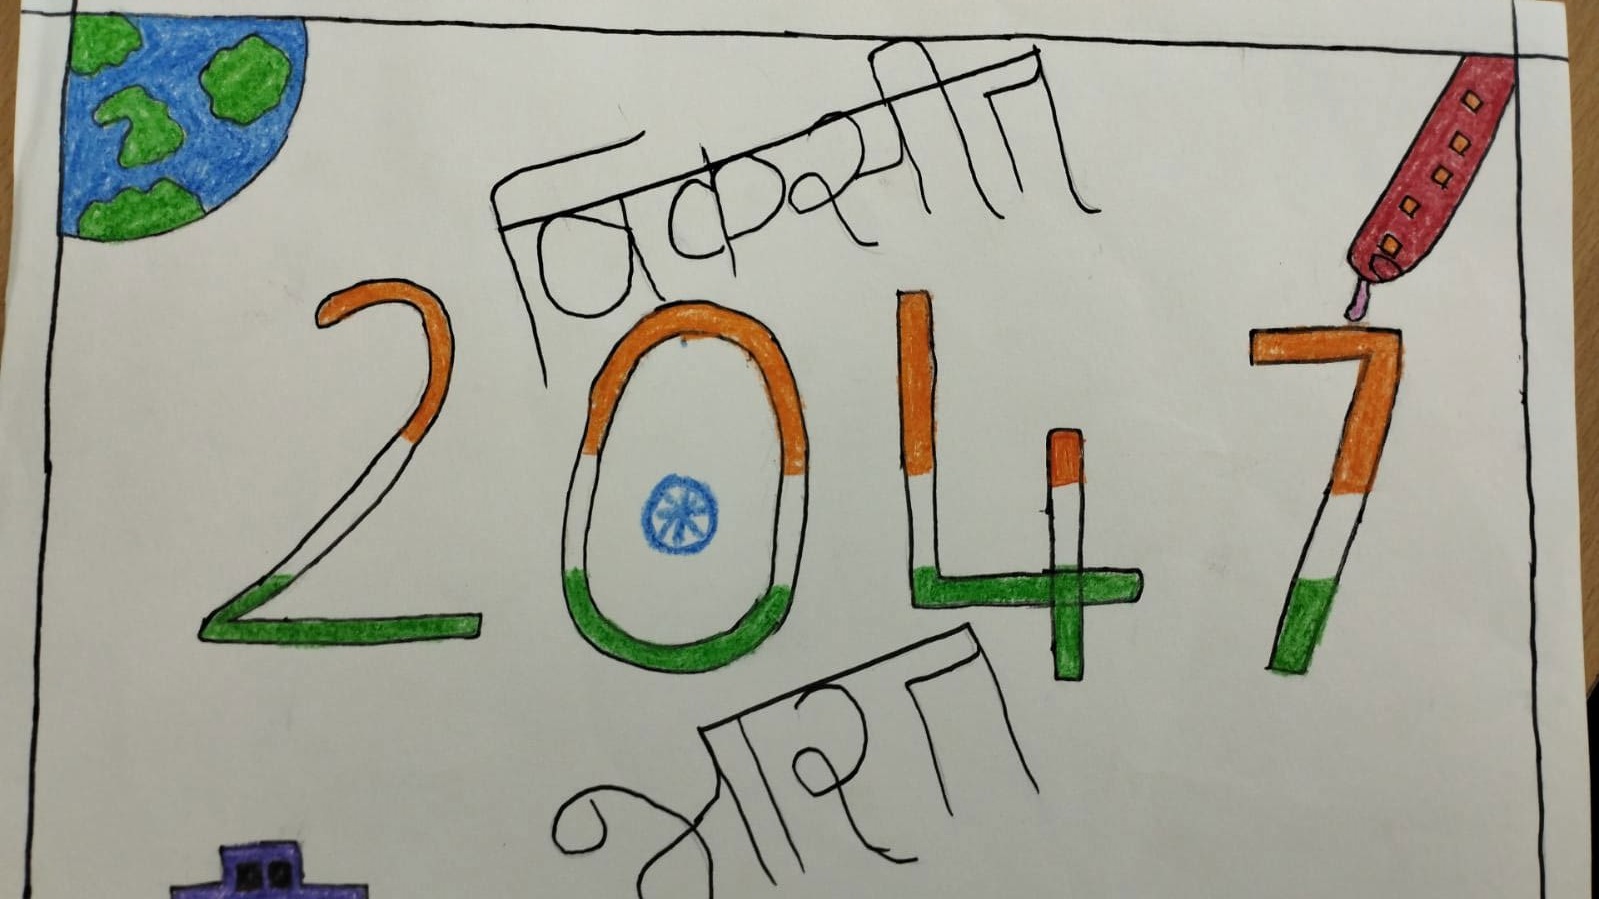 विकसीत
2047
भारत